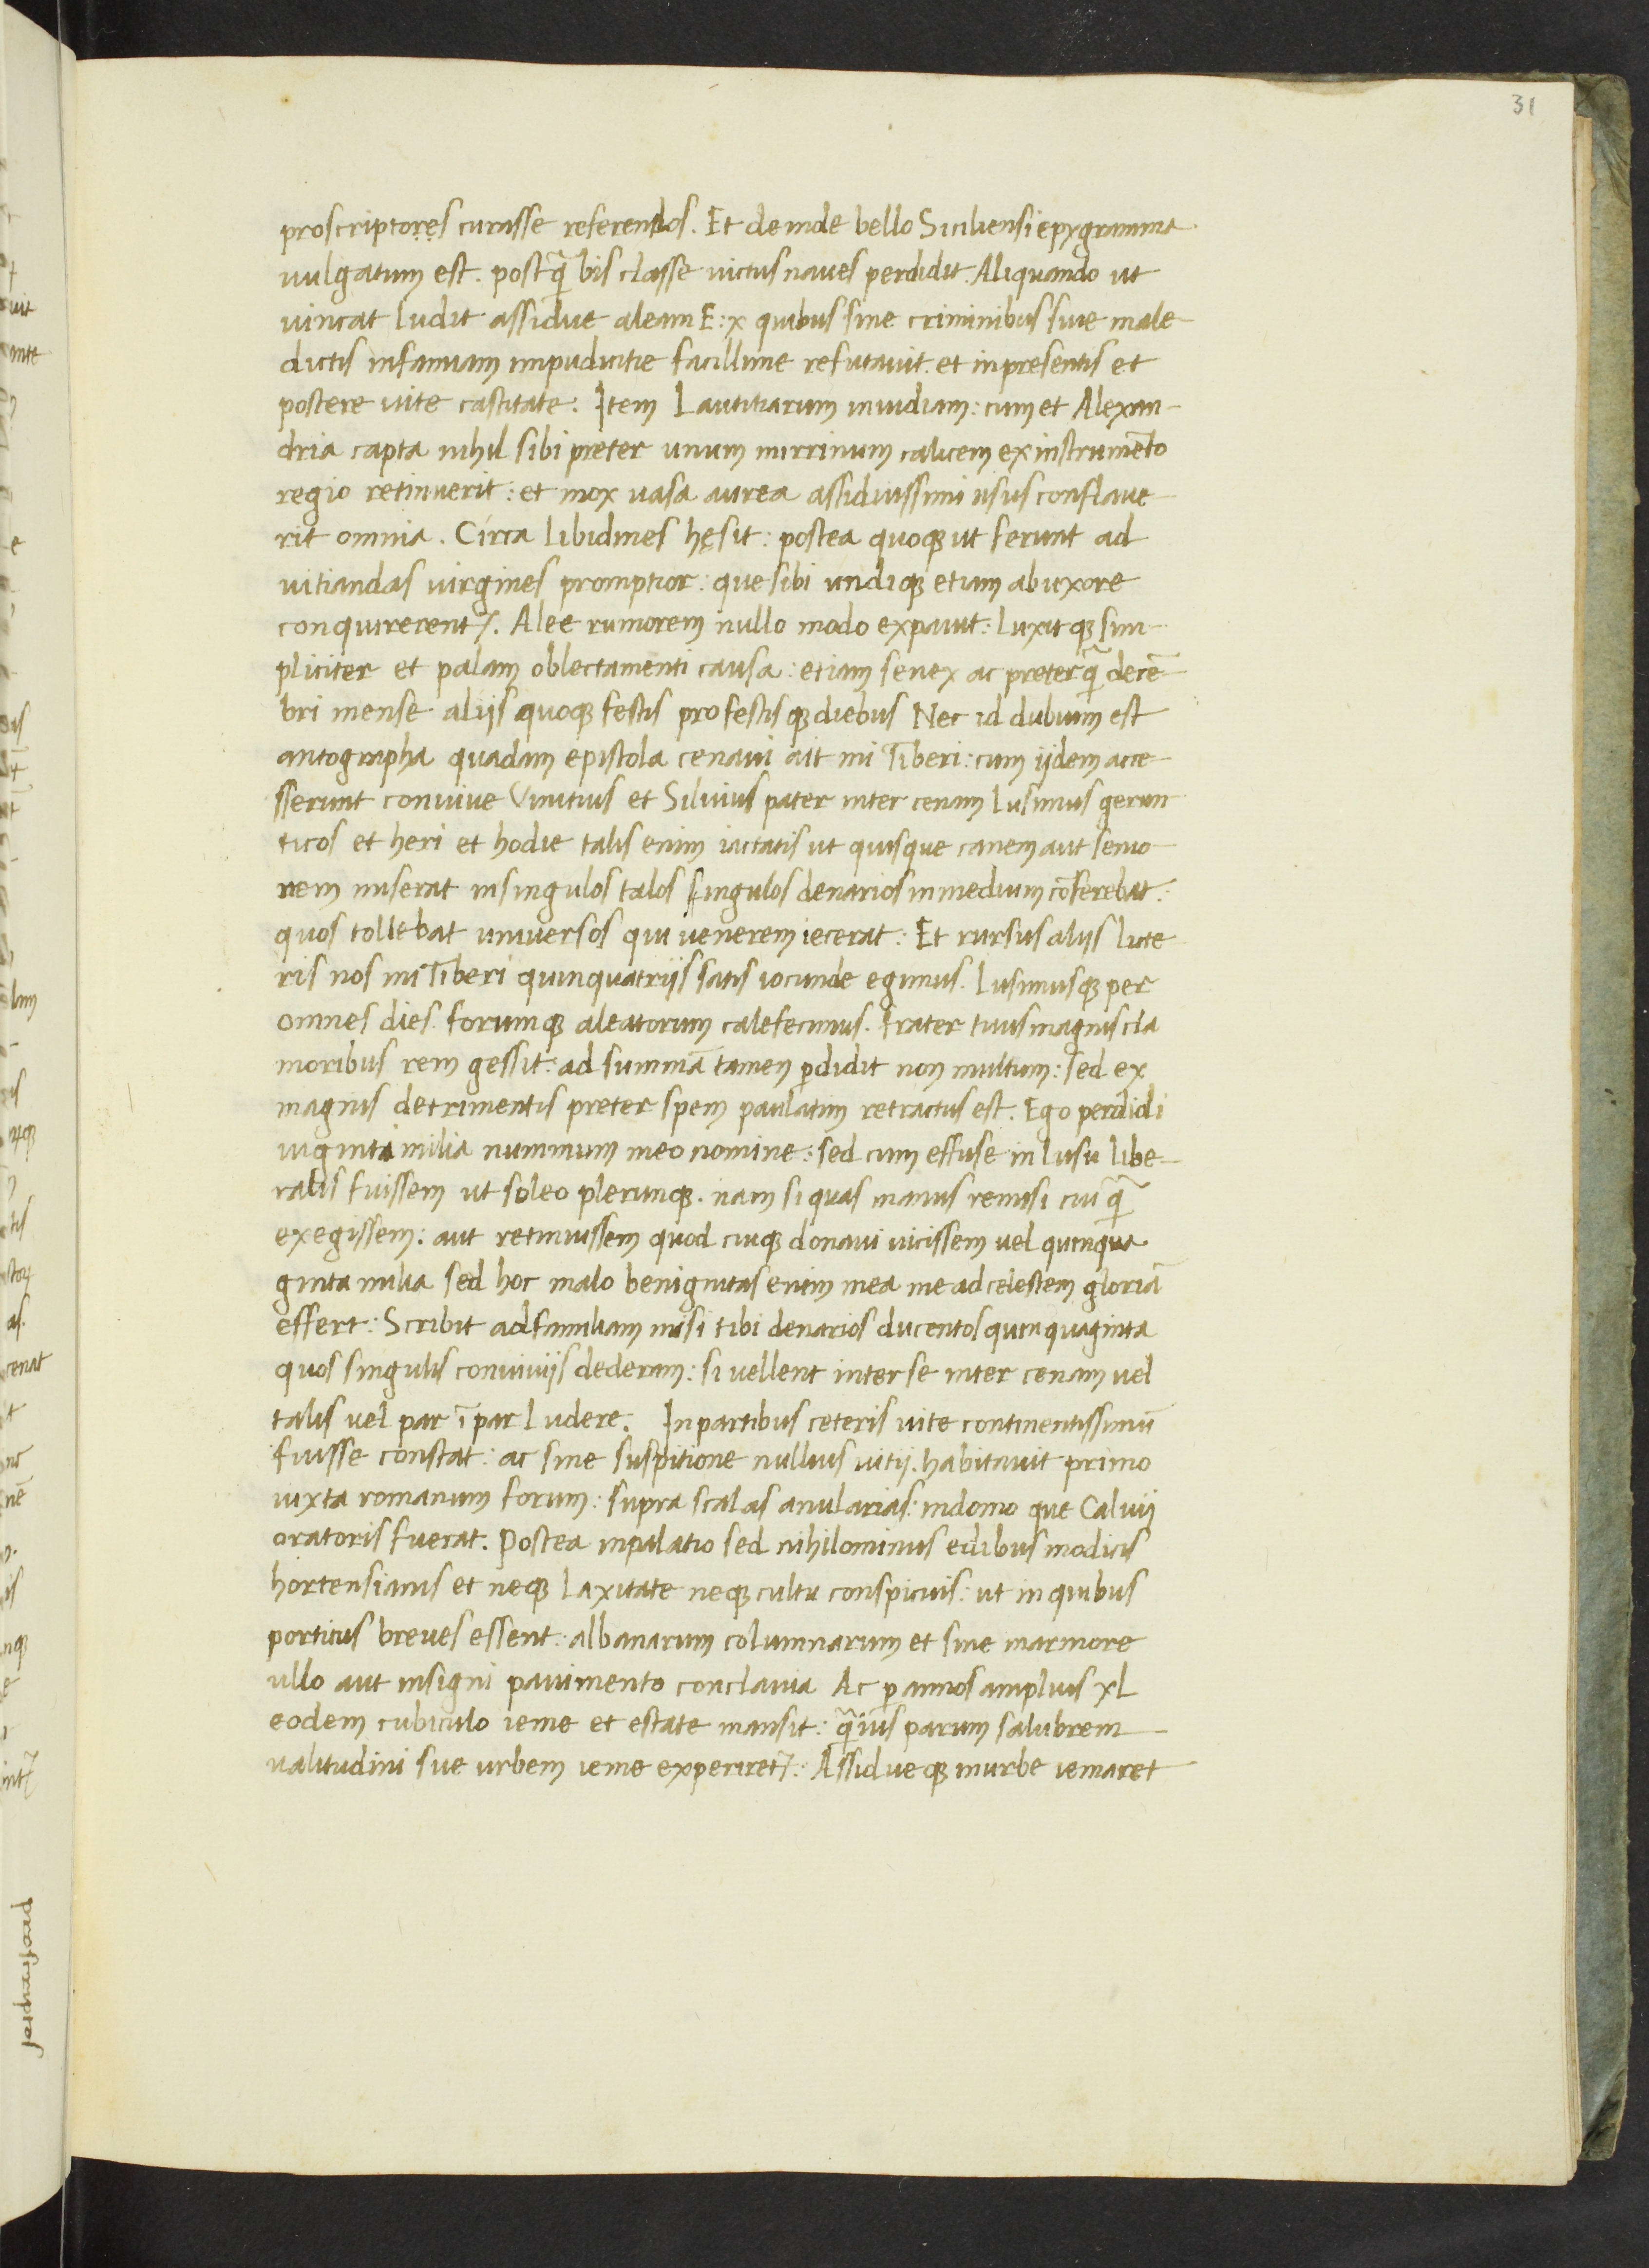 31
proscriptores curasse referendos. Et deinde bello Siciliensi epygramma
uulgatum est. postq̃ bis classe uictus naues perdidit. Aliquando ut
uincat ludit assidue aleam E:x quibus siue criminibus siue male-
dictis infamiam impudicitie facillime refutauit. et in presentis et
postere uite castitate: Item Lautitiarum inuidiam: cum et Alexan-
dria capta nihil sibi preter unum mirrinum calicem ex instrumẽto
regio retinuerit: et mox uasa aurea assiduissimi usus conflaue-
rit omnia. Circa libidines hęsit: postea quoqȝ ut ferunt ad
uitiandas uirgines promptior: que sibi undiqȝ etiam ab uxore
conquirerent᷑. Alee rumorem nullo modo expauit: Luxitqȝ sim-
pliciter et palam oblectamenti causa: etiam senex ac preterq̃ decẽ
bri mense alijs quoqȝ festis profestisqȝ diebus Nec id dubium est
autographa quadam epistola cenaui ait mi Tiberi: cum ijdem acce-
sserunt conuiue Vinitius et Siluius pater inter cenam lusimus geron
ticos et heri et hodie talis enim iactatis ut quisque canem aut senio-
nem miserat in singulos talos singulos denarios in medium cõferebat:
quos tollebat uniuersos qui uenerem iecerat: Et rursus alijs litte
ris nos mi Tiberi quinquatrijs satis iocunde egimus. Lusimusqȝ per
omnes dies. forumqȝ aleatorum calefecimus. frater tuus magnis cla
moribus rem gessit: ad summã tamen ꝑdidit non multum: sed ex
magnis detrimentis preter spem paulatim retractus est. Ego perdidi
uiginti milia nummum meo nomine: sed cum effuse in lusu libe-
ralis fuissem ut soleo plerunqȝ. nam si quas manus remisi cuiq̃
exegissem: aut retinuissem quod cuiqȝ donaui uicissem uel quinqua
ginta milia sed hoc malo benignitas enim mea me ad celestem gloriã
effert: Scribit ad familiam misi tibi denarios ducentos quinquaginta
quos singulis conuiuijs dederam: si uellent inter se inter cenam uel
talis uel par ĩpar Ludere. In partibus ceteris uite continentissimũ
fuisse constat: ac sine suspitione nullius uitij. habitauit primo
iuxta romanum forum: supra scalas anularias: in domo que Caluij
oratoris fuerat. Postea in palatio sed nihilominus edibus modicis
hortensianis et neqȝ laxitate neqȝ cultu conspicuis: ut in quibus
porticus breues essent: albanarum columnarum et sine marmore
ullo aut insigni pauimento conclauia Ac ꝑ annos amplius xL
eodem cubiculo ieme et estate mansit: q̃uis parum salubrem
ualitudini sue urbem ieme experiret᷑: Assidueqȝ in urbe iemaret